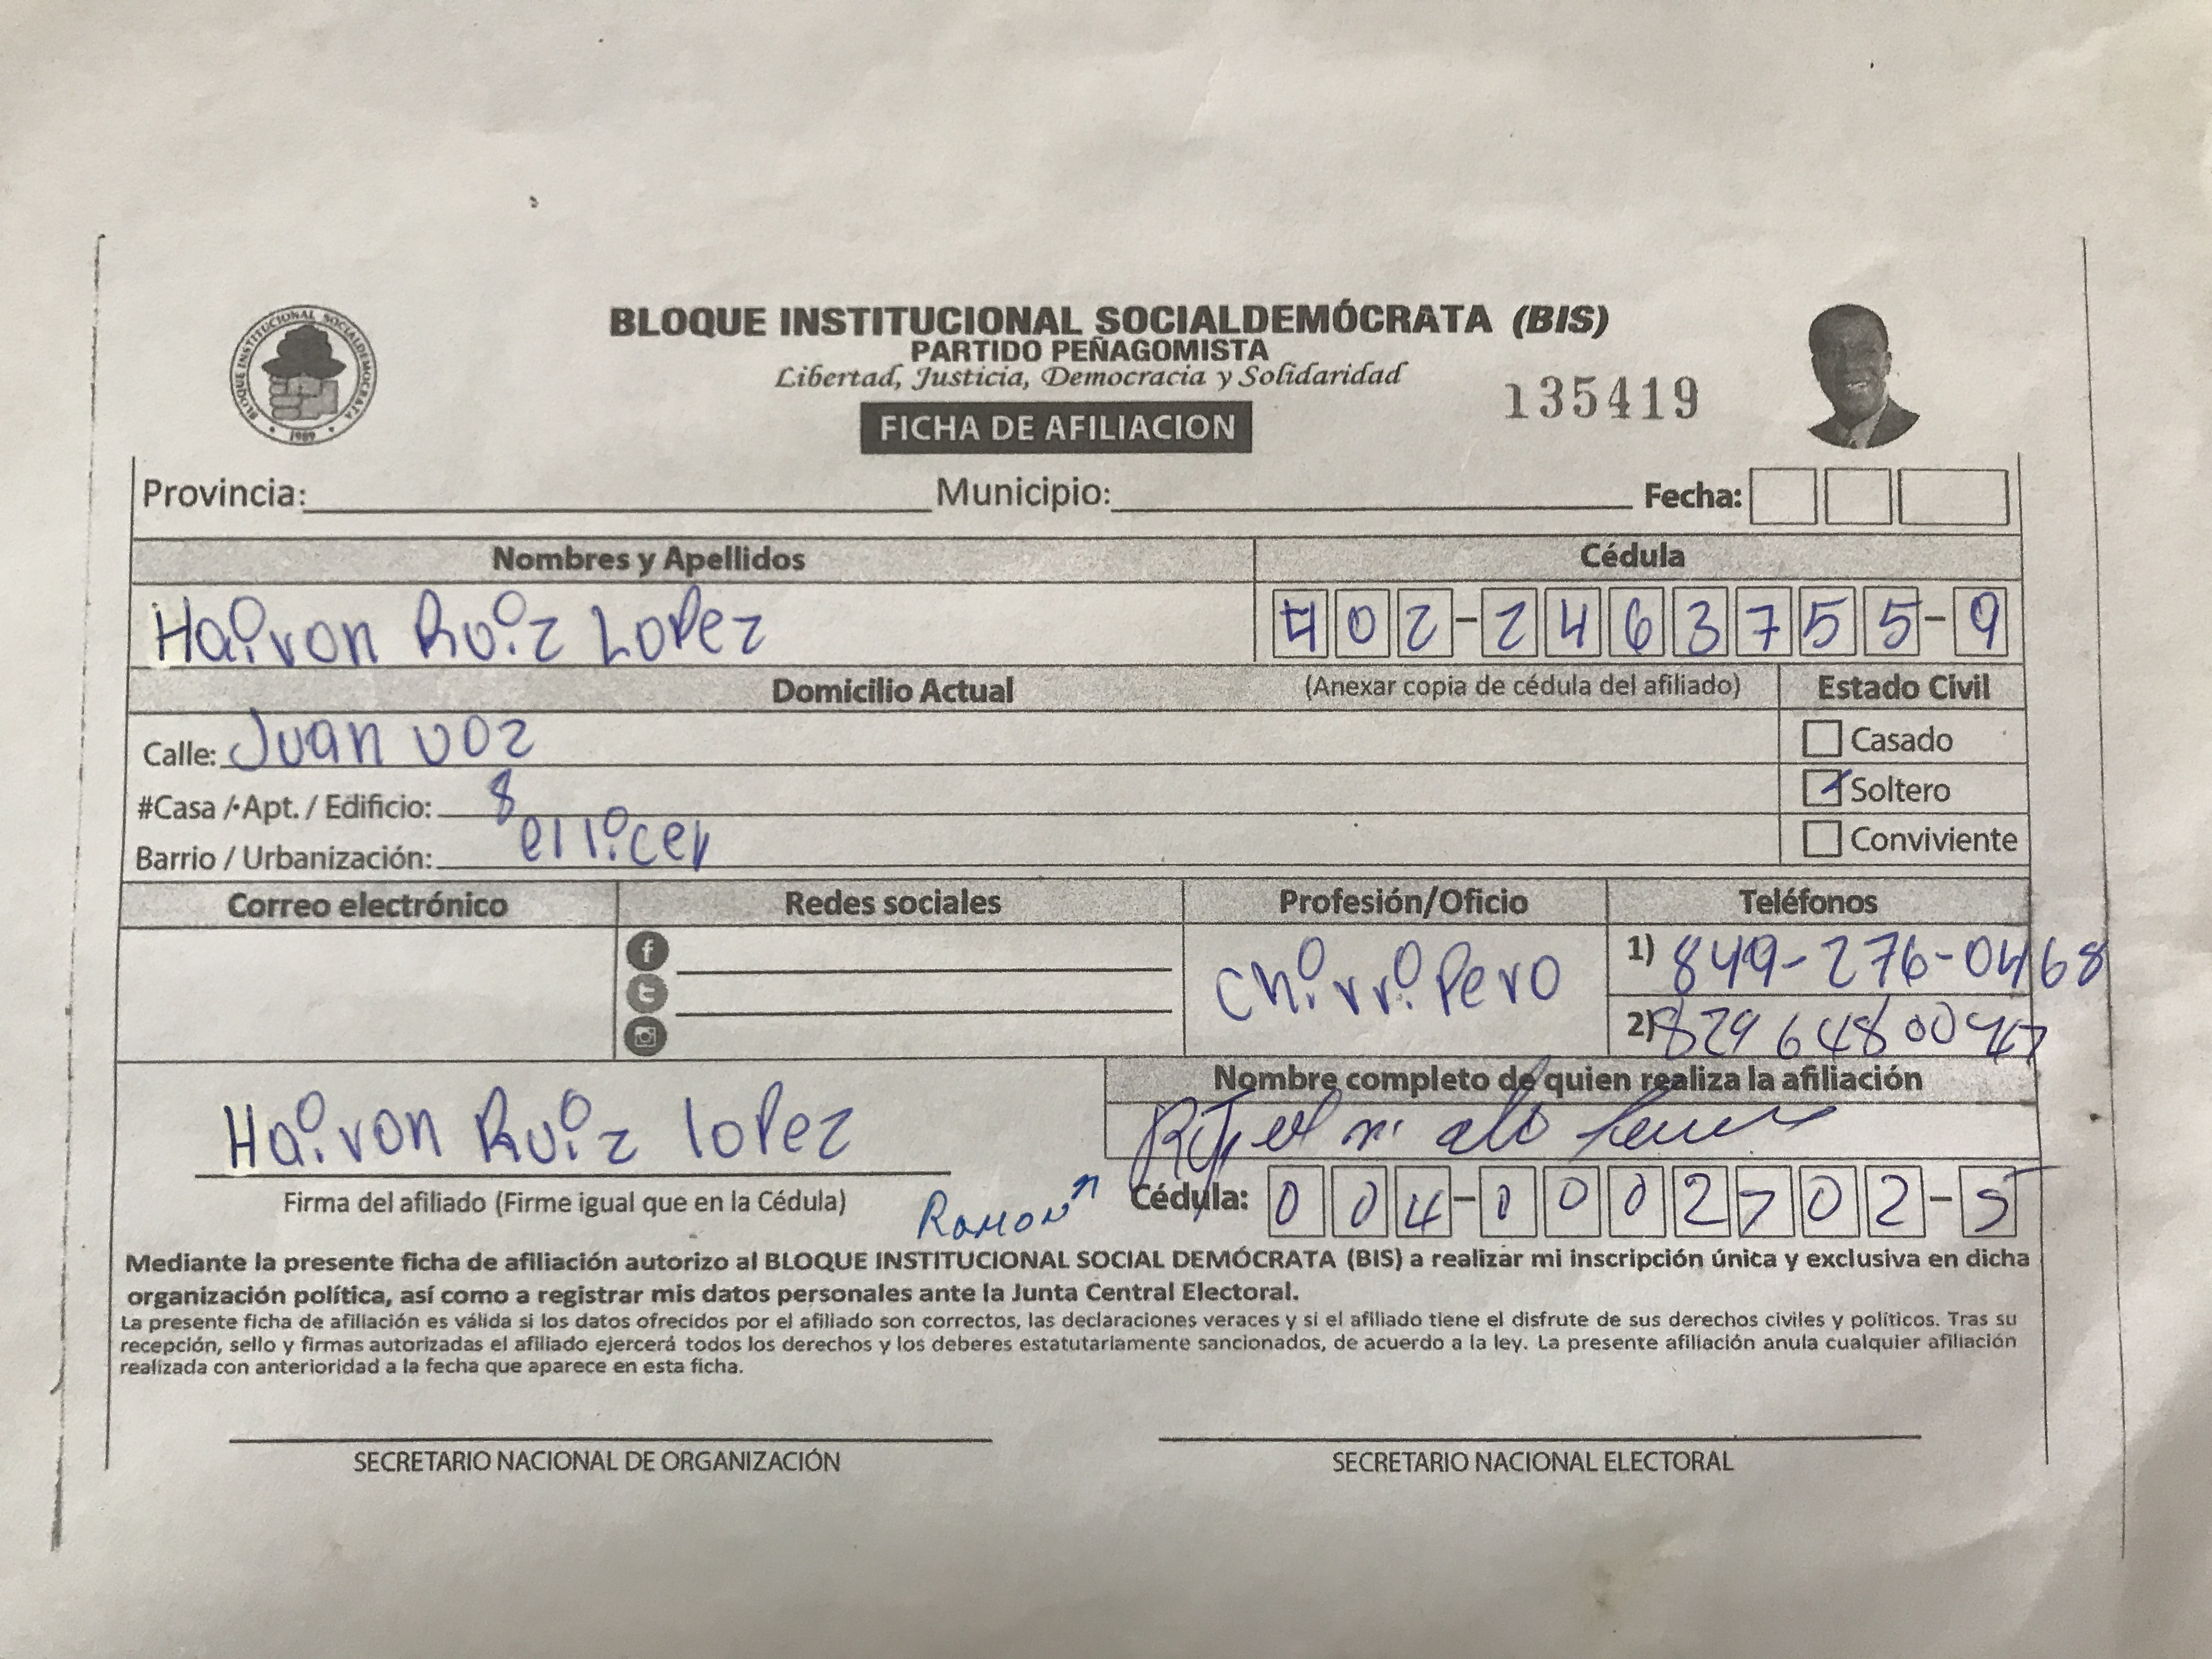 BLOQUE INSTITUCIONAL SOCIALDEMOCRATA
1989
BLOQUE INSTITUCIONAL SOCIALDEMÓCRATA (BIS)
PARTIDO PEÑAGOMISTA
Libertad, Justicia, Democracia y Solidaridad
135419
FICHA DE AFILIACION
Provincia: Municipio: Fecha:
Nombres y Apellidos Cédula
Hairon Ruiz Lopez 402-2463755-9
Domicilio Actual (Anexar copia de cédula del afiliado) Estado Civil
Calle: Juan Casado
#Casa / Apt. / Edificio: 8 Soltero
Barrio / Urbanización: Conviviente
Correo electrónico Redes sociales Profesión/Oficio Teléfonos
Chirripero 1) 849-276-0468
2) 8296480047
Nombre completo de quien realiza la afiliación
Hairon Ruiz lopez
Firma del afiliado (Firme igual que en la Cédula) Ramon Cédula: 004-0002702-5
Mediante la presente ficha de afiliación autorizo al BLOQUE INSTITUCIONAL SOCIAL DEMÓCRATA (BIS) a realizar mi inscripción única y exclusiva en dicha
organización política, así como a registrar mis datos personales ante la Junta Central Electoral.
La presente ficha de afiliación es válida si los datos ofrecidos por el afiliado son correctos, las declaraciones veraces y si el afiliado tiene el disfrute de sus derechos civiles y políticos. Tras su
recepción, sello y firmas autorizadas el afiliado ejercerá todos los derechos y los deberes estatutariamente sancionados, de acuerdo a la ley. La presente afiliación anula cualquier afiliación
realizada con anterioridad a la fecha que aparece en esta ficha.
SECRETARIO NACIONAL DE ORGANIZACIÓN SECRETARIO NACIONAL ELECTORAL